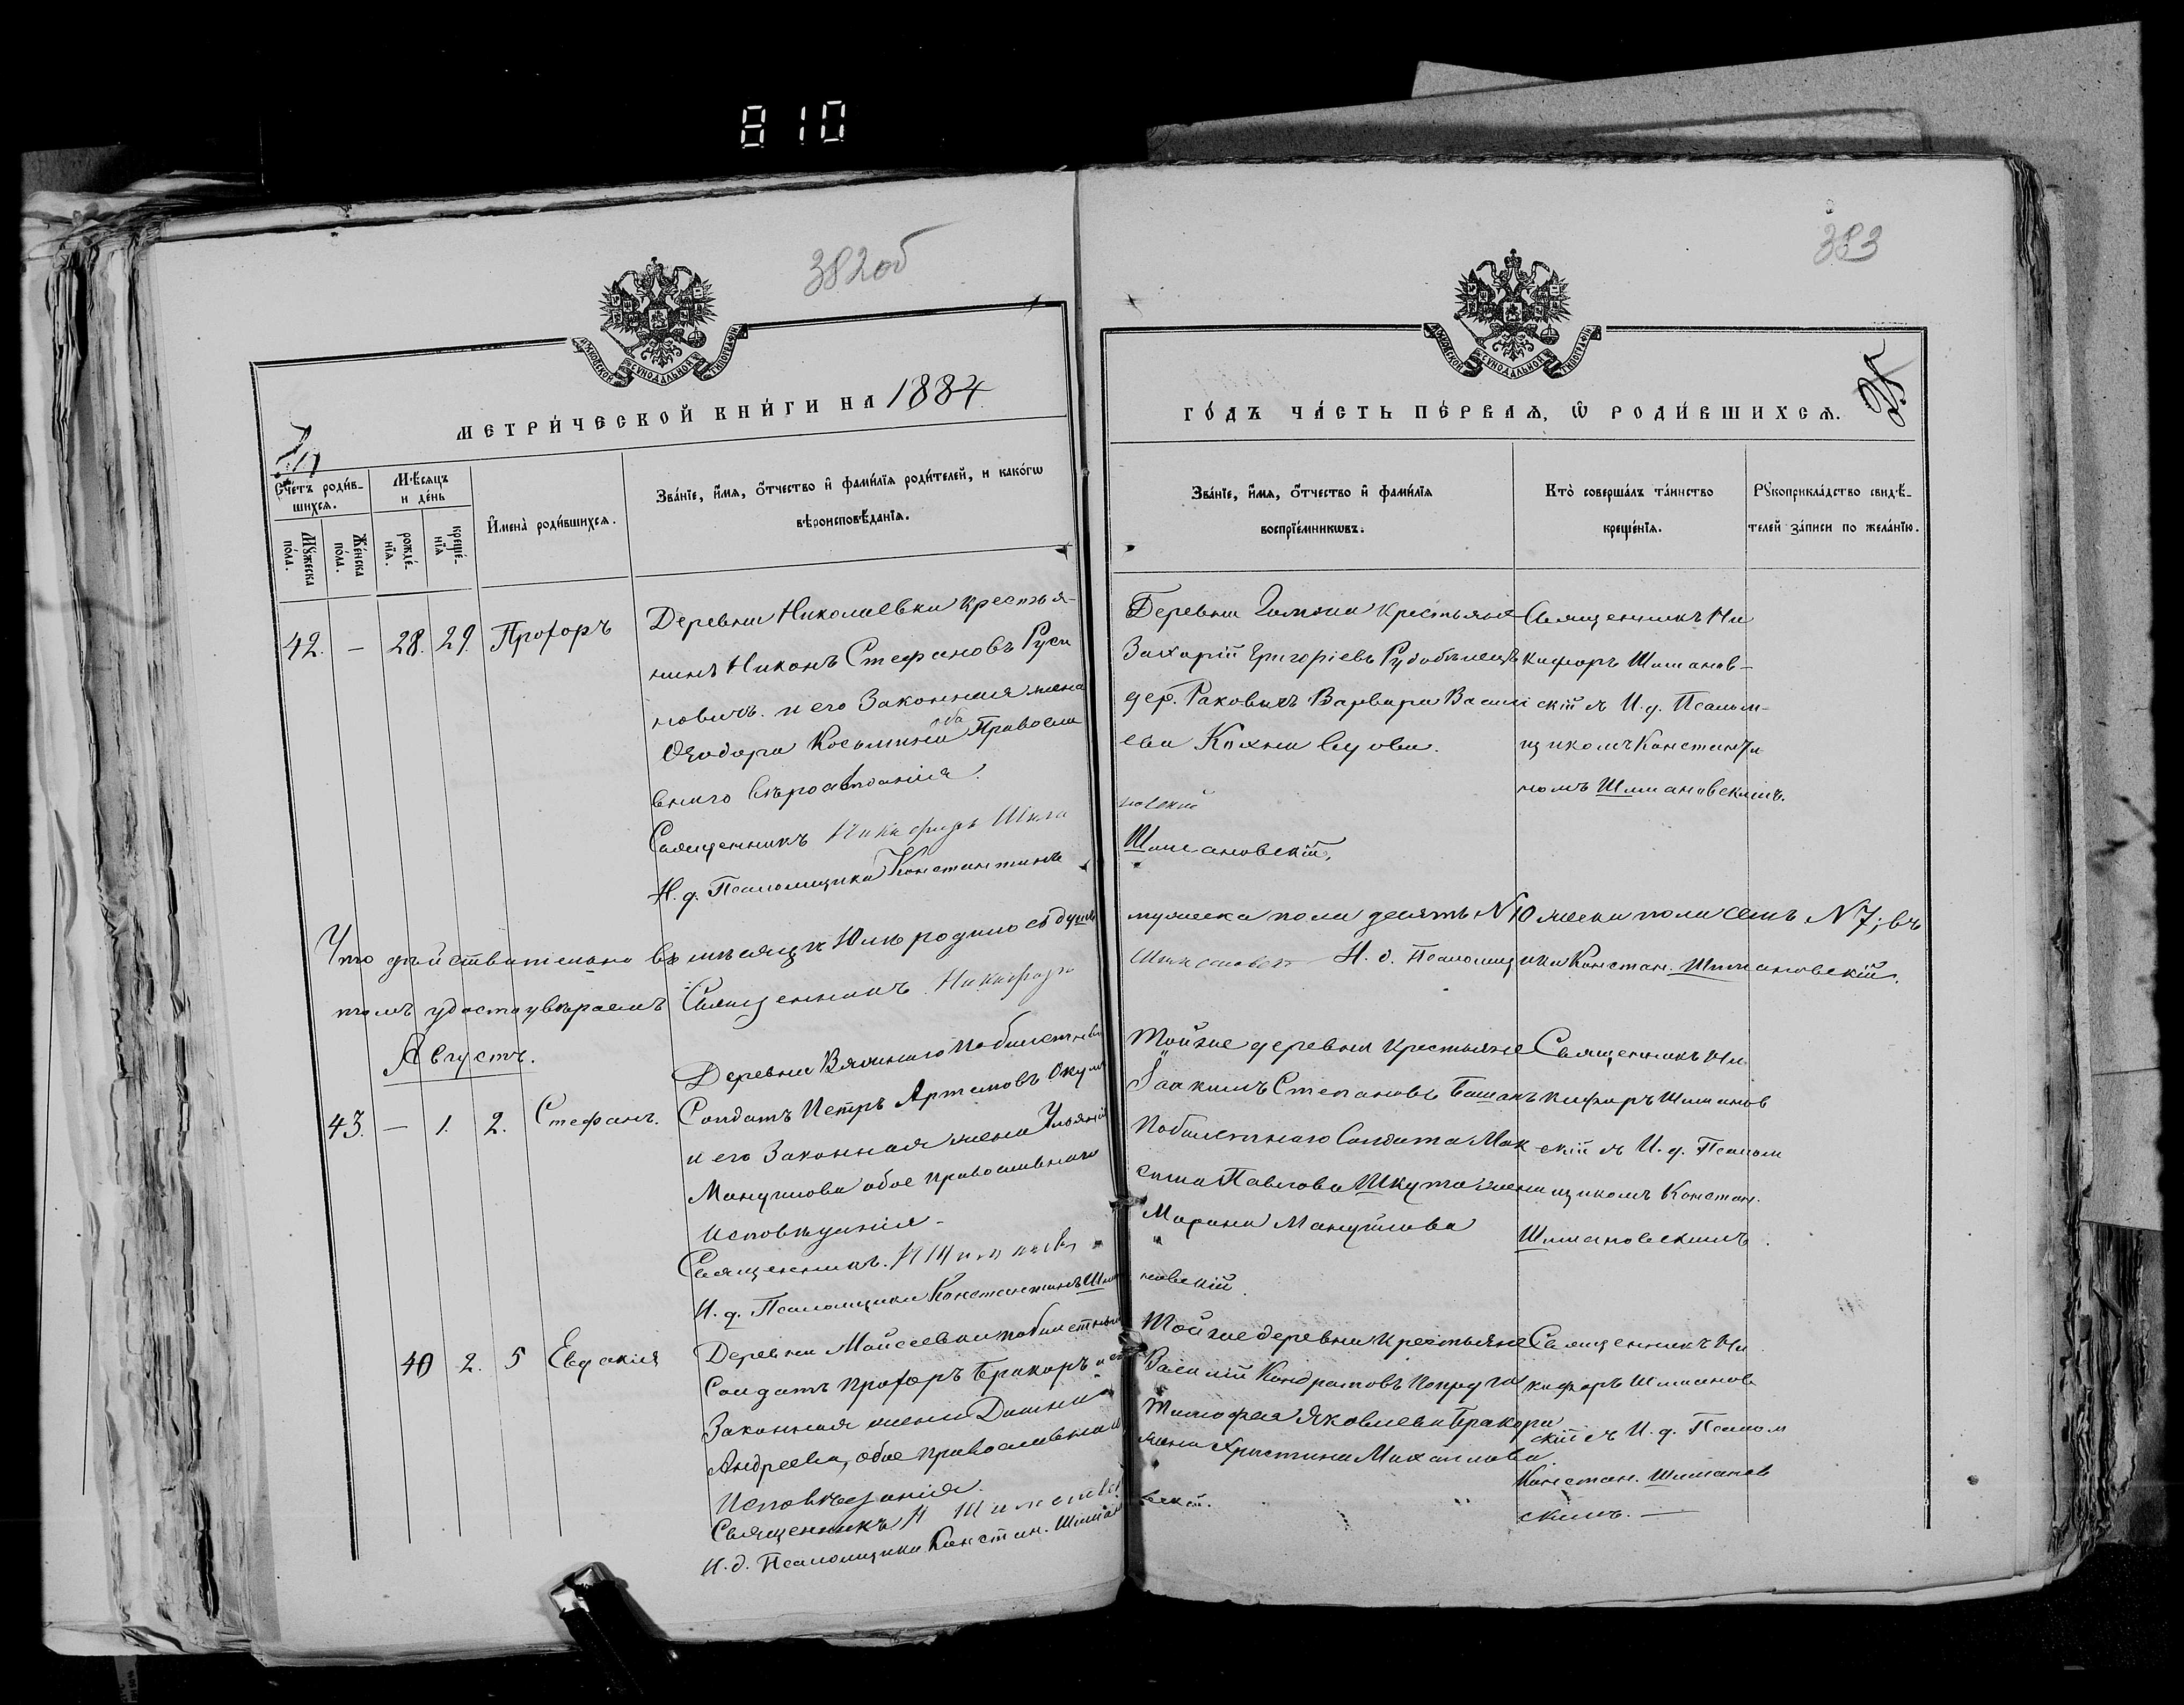 810
382об
383
МЕТРИ́ЧЕСКОЙ КНИ́ГИ НА 1884
ГО́ДЪ ЧА́СТЬ ПЕ́РВАѦ, Ѡ РОДИ́ВШИХСѦ.
МОСКОВСКОЙ СѴНОДАЛЬНОЙ ТИПОГРАФІИ
МОСКОВСКОЙ СѴНОДАЛЬНОЙ ТИПОГРАФІИ
Сче́тъ роди́в-
шихсѧ.
Мꙋ́жеска
по́ла.
Же́нска
по́ла.
Мѣ́сѧцъ
и де́нь
рожде́-
нїѧ.
креще́-
нїѧ
И҆мена̀ роди́вшихсѧ.
Зва́нїе, и҆́мѧ, ѻ҆́тчество и҆ фами́лїѧ роди́телей, и како́гѡ
вѣроисповѣ́данїѧ.
Зва́нїе, и҆́мѧ, ѻ҆́тчество и҆ фами́лїѧ
воспрїе́мникѡвъ.
Кто̀ соверша́лъ та́инство
креще́нїѧ.
Рꙋкоприкла́дство свидѣ́-
телей за́писи по жела́нїю.
42. — 28. 29. Прохоръ
Деревни Николаевки крестья-
нинъ Никонъ Стефановъ Руси
новичъ и его Законная жена
Ѳеодора Косьмина оба Правосла
внаго вѣроисповѣданія.
Священникъ Никифоръ Шима
И. д. Псаломщика Константинъ
Деревни крестьяне
Захарій Григоріевъ Рудобѣлецъ
дер. Раковичъ Варвара Васил
ева Кохна вдова.
новскій
Шимановскій.
Священникъ Ни
кифоръ Шиманов-
скій съ И. д. Псалом-
щикомъ Константи
номъ Шимановскимъ.
Что дѣйствительно въ мѣсяцѣ Юлѣ родилось душъ
мужеска пола десять N 10 женска пола семь N 7; въ
томъ удостовѣряемъ Священникъ Никифоръ
Шимановскій И. д. Псаломщика Констан. Шимановскій.
Августъ.
43. — 1. 2. Стефанъ.
Деревни Вяжнаго побилетный
Солдатъ Петръ Артемовъ
и его Законная жена Ульянія
Мануилова обое православнаго
исповѣданія.
Священникъ. Н Шимановс
И. д. Псаломщика Константинъ Шима
Той же деревни крестьяне
Іоакимъ Степановъ Башанъ
побилетнаго Солдата Мак
сима Павлова Шкута жена
Марина Мануилова
новскій.
Священникъ Ни
кифоръ Шиманов
скій съ И. д. Псалом
щикомъ Констан.
Шимановскимъ.
40 2. 5 Евдокія
Деревни Мойсеевки побилетный
Солдатъ Прохоръ Бракоръ и его
Законная жена Домна
Андреева, обое православнаго
исповѣданія.
Священникъ Н Шимановс
И. д. Псаломщика Констан. Шиман
Той же деревни крестьяне
Василій Кондратовъ Попруга
Тимофея Яковлева Бракора
жена Христина Михаилова
вскій.
Священникъ Ни
кифоръ Шиманов
скій съ И. д. Псалом
Констан. Шиманов
скимъ. —